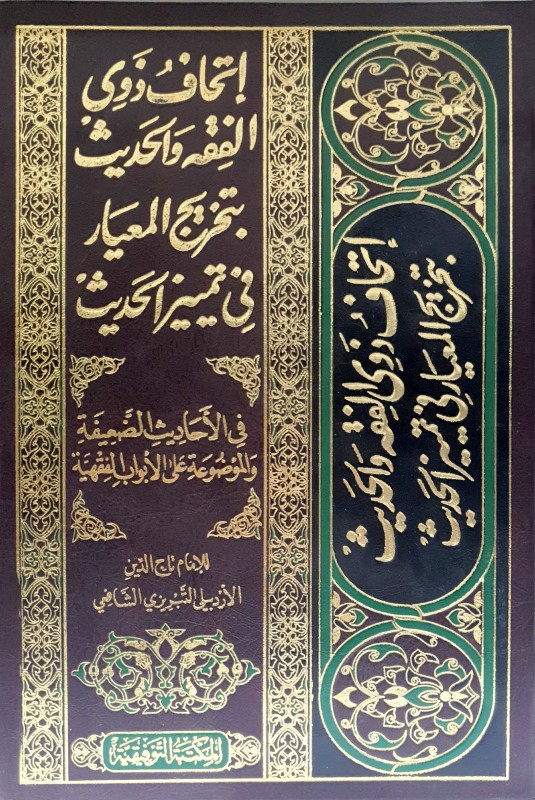 إتحاف ذوي
الفقه والحديث
بتخريج المعيار
في تمييز الحديث
في الأحاديث الضعيفة
والموضوعة على الأبواب الفقهية
للإمام تاج الدين
الأردبيلي التبريزي الشافعي
المكتبة التوفيقية
إتحاف ذوي الفقه والحديث
بتخريج المعيار في تمييز الحديث